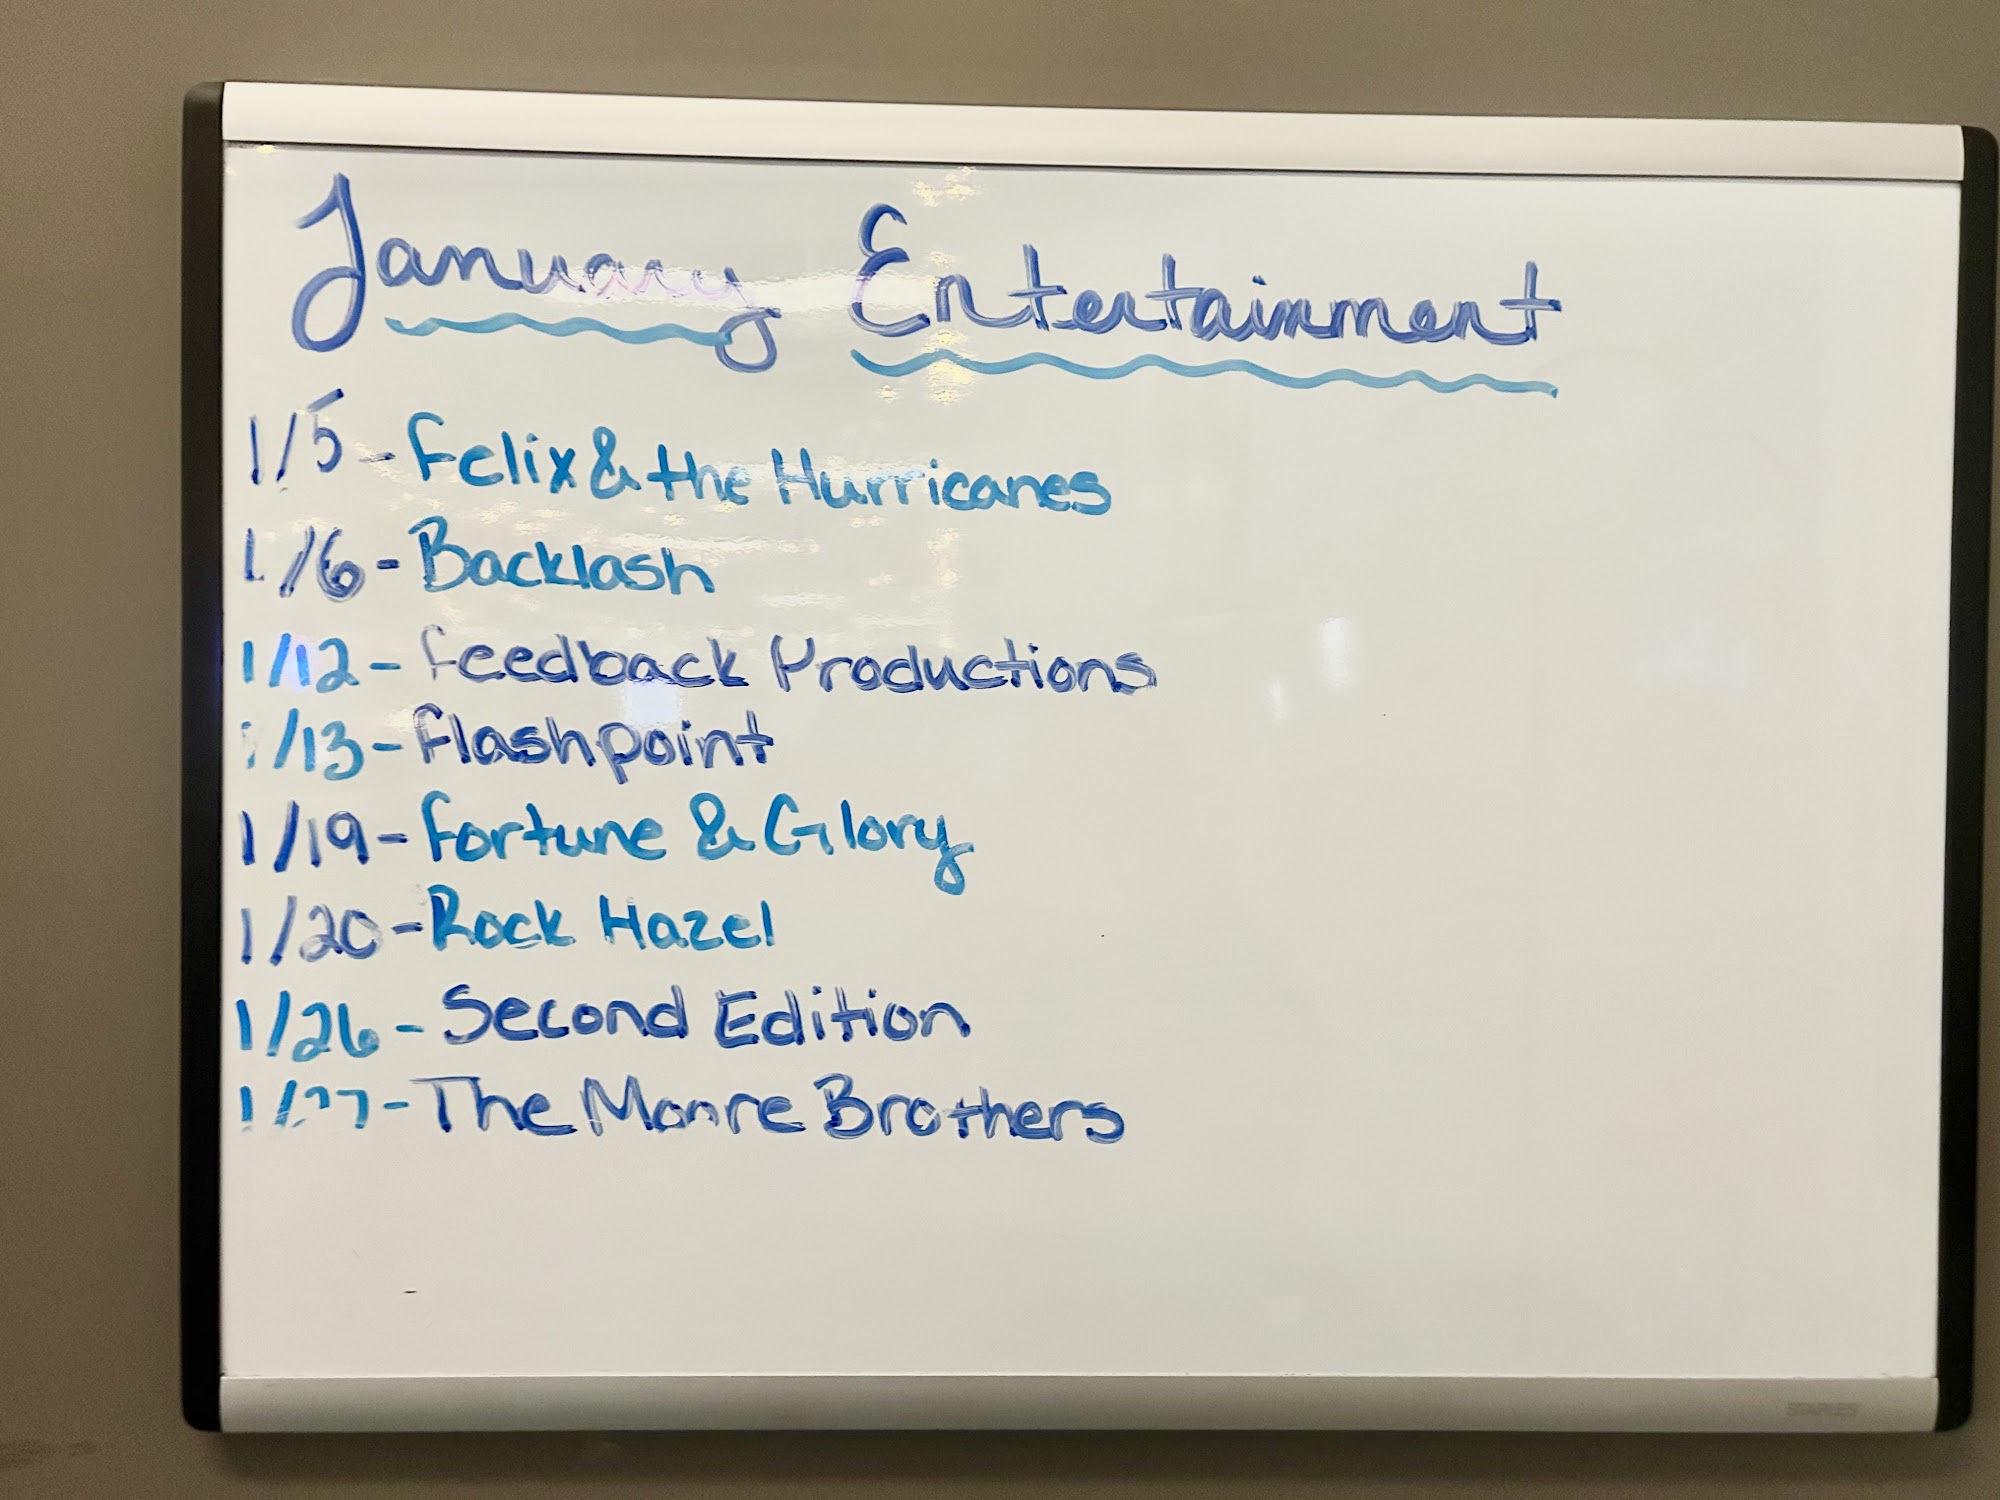 January Entertainment
1/5 - Felix & the Hurricanes
1/6 - Backlash
1/12 - Feedback Productions
1/13 - Flashpoint
1/19 - Fortune & Glory
1/20 - Rock Hazel
1/26 - Second Edition
1/27 - The Moore Brothers
STAPLES